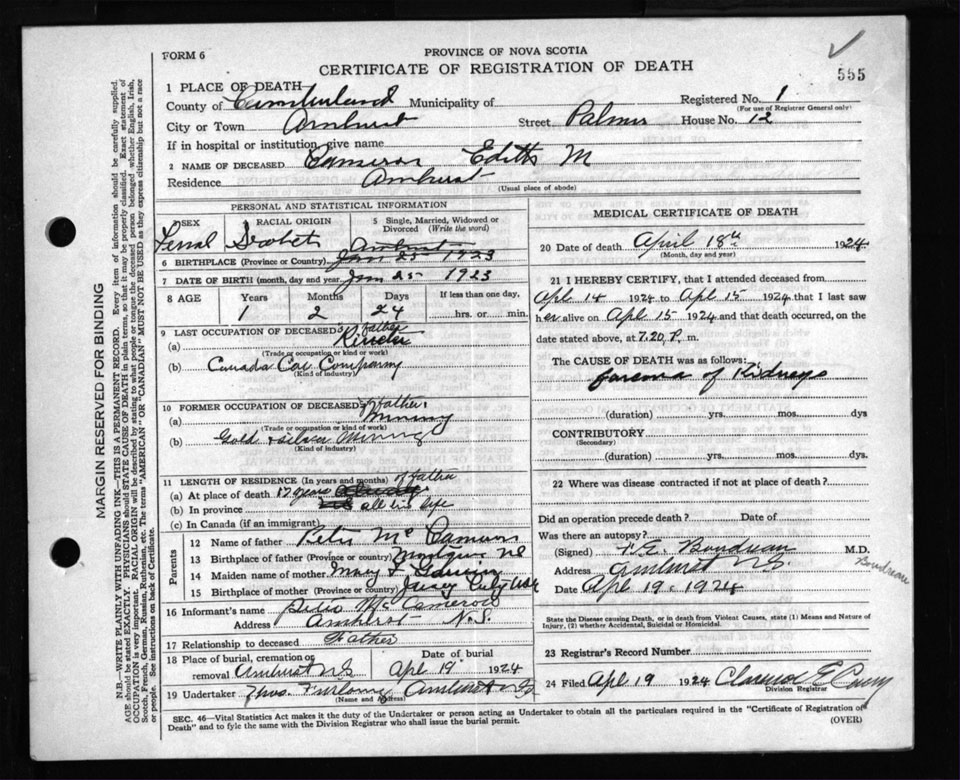 FORM 6
PROVINCE OF NOVA SCOTIA
CERTIFICATE OF REGISTRATION OF DEATH
555
1 PLACE OF DEATH
County of Cumberland Municipality of
Registered No. 1
(For use of Registrar General only)
City or Town Amherst Street Palmer House No. 12
If in hospital or institution, give name
2 NAME OF DECEASED Cameron Edith M
Residence Amherst
(Usual place of abode)
PERSONAL AND STATISTICAL INFORMATION
SEX RACIAL ORIGIN 5 Single, Married, Widowed or Divorced (Write the word)
Scotch
6 BIRTHPLACE (Province or Country) Amherst Jan 25 1923
7 DATE OF BIRTH (month, day and year) Jan 25 1923
8 AGE Years Months Days If less than one day,
1 2 24 hrs. or min.
9 LAST OCCUPATION OF DECEASED'S father
(a)
(Trade or occupation or kind or work)
(b) Canada Car Company
(Kind of industry)
10 FORMER OCCUPATION OF DECEASED'S father
(a) Mining
(Trade or occupation or kind of work)
(b) Gold & Silver Mining
(Kind of industry)
11 LENGTH OF RESIDENCE (In years and months) of father
(a) At place of death 17 years
(b) In province all his life
(c) In Canada (if an immigrant)
Parents
12 Name of father Peter Mc Cameron
13 Birthplace of father (Province or country)
14 Maiden name of mother Mary
15 Birthplace of mother (Province or country) Jersey City USA
16 Informant's name Peter Mc Cameron
Address Amherst N.S.
17 Relationship to deceased Father
18 Place of burial, cremation or removal Amherst N S
Date of burial Apl 19 1924
19 Undertaker Thos. Furlong Amherst N S
(Name and Address)
MEDICAL CERTIFICATE OF DEATH
20 Date of death April 18th 1924
(Month, day and year)
21 I HEREBY CERTIFY, that I attended deceased from
Apl 14 1924 to Apl 15 1924 that I last saw
her alive on Apl 15 1924 and that death occurred, on the
date stated above, at 7.20 P. m.
The CAUSE OF DEATH was as follows:
Sarcoma of Kidneys
(duration) yrs. mos. dys
CONTRIBUTORY
(Secondary)
(duration) yrs. mos. dys.
22 Where was disease contracted if not at place of death?
Did an operation precede death? Date of
Was there an autopsy?
(Signed) Boudreau M.D.
Boudreau
Address Amherst N.S.
Date Apl 19. 1924
State the Disease causing Death, or in death from Violent Causes, state (1) Means and Nature of
Injury, (2) whether Accidental, Suicidal or Homicidal.
23 Registrar's Record Number
24 Filed Apl 19 1924 Clarence E
Division Registrar
SEC. 46—Vital Statistics Act makes it the duty of the Undertaker or person acting as Undertaker to obtain all the particulars required in the "Certificate of Registration of
Death" and to fyle the same with the Division Registrar who shall issue the burial permit.
(OVER)
MARGIN RESERVED FOR BINDING
N.B.—WRITE PLAINLY WITH UNFADING INK—THIS IS A PERMANENT RECORD. Every item of information should be carefully supplied.
AGE should be stated EXACTLY. PHYSICIANS should STATE CAUSE OF DEATH in plain terms, so that it may be properly classified. Exact statement of
OCCUPATION is very important. RACIAL ORIGIN will be described by stating to what people or tongue the deceased person belonged whether English, Irish,
Scotch, French, German, Russian, Ruthenian, etc. The terms "AMERICAN" OR "CANADIAN" MUST NOT BE USED as they express citizenship but not a race
or people. See instructions on back of Certificate.